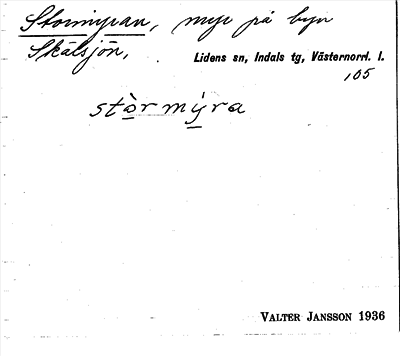 Stormyran, myr på byn
Skälsjön,
Lidens sn, Indals tg, Västernorrl. l.
105
stòrmýra
VALTER JANSSON 1936